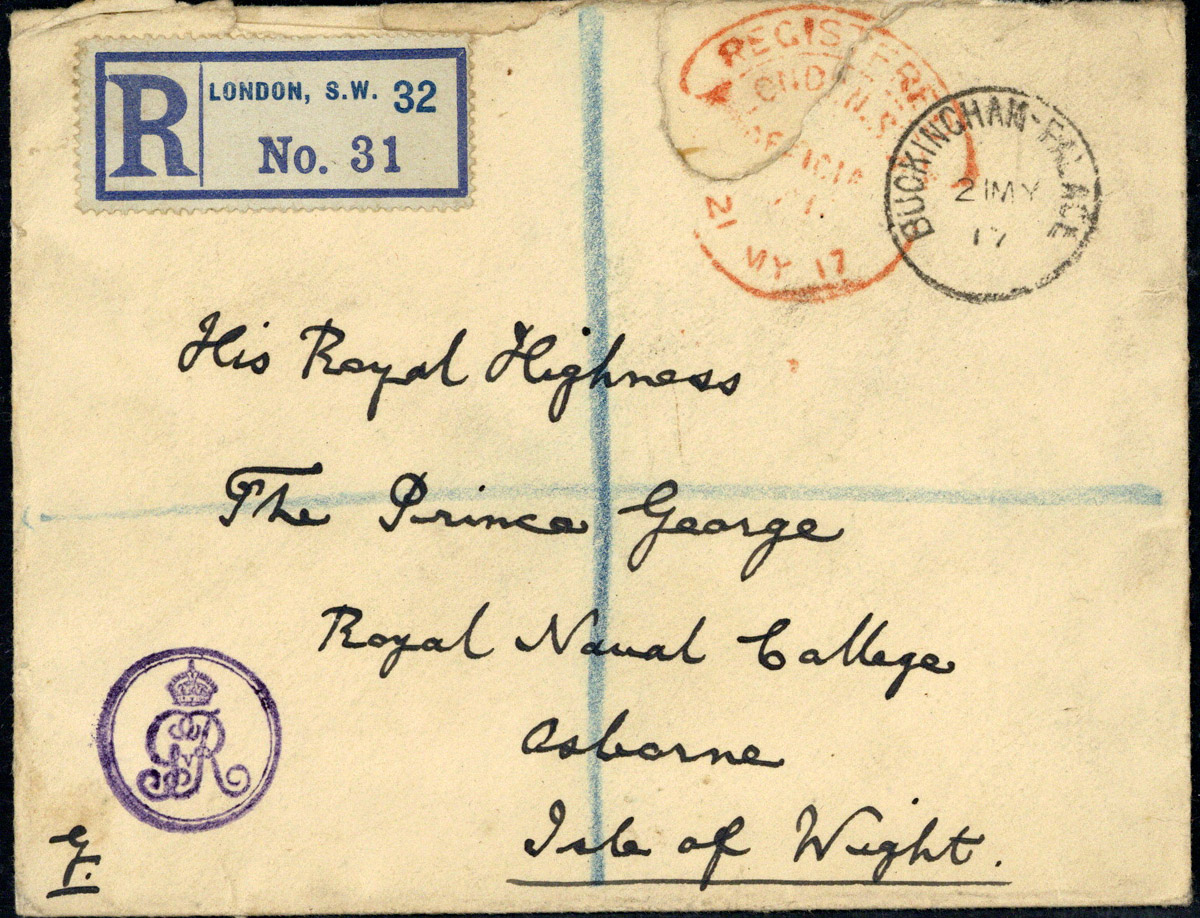 R
LONDON, S.W. 32
No. 31
REGISTERE
ONDON.S
OFFICIA
21 MY 17
BUCKINGHAM-PALACE
21MY
17
His Royal Highness
The Prince George
Royal Naval College
Osborne
Isle of Wight.
GR
G.